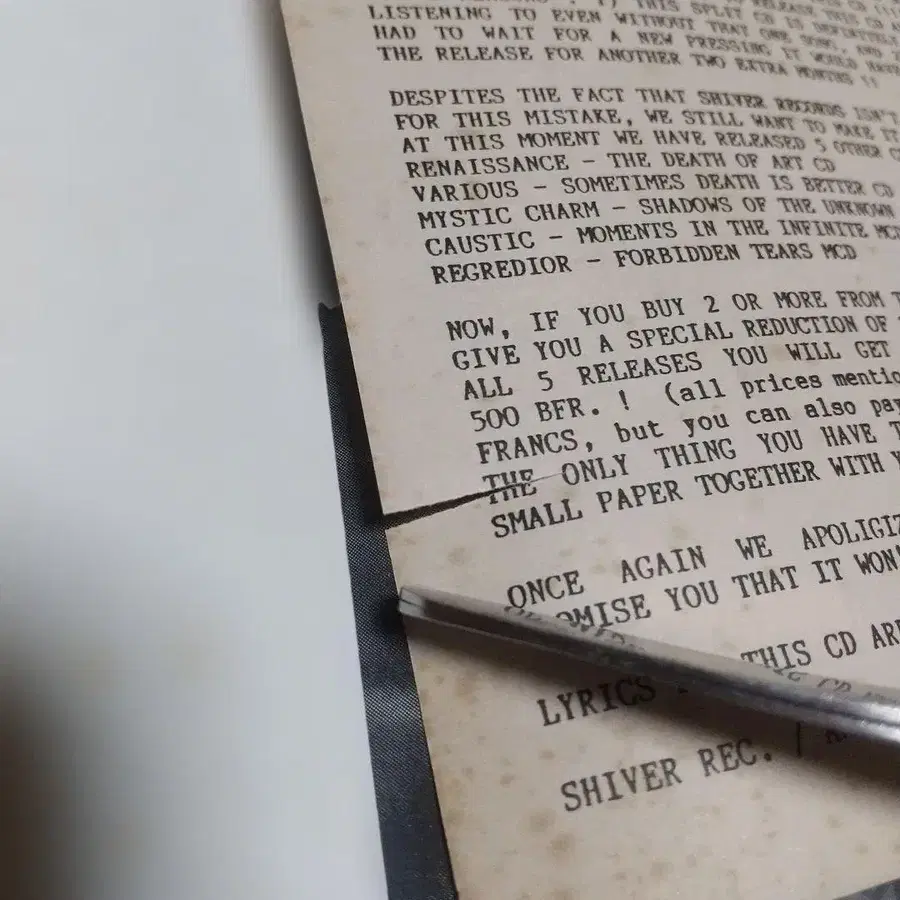 RELEASE, THIS CD
THIS SPLIT CD IS DEFINITELY
LISTENING TO EVEN WITHOUT THAT ONE SONG, AND
HAD TO WAIT FOR A NEW PRESSING IT WOULD HAVE
THE RELEASE FOR ANOTHER TWO EXTRA MONTHS !!
DESPITES THE FACT THAT SHIVER RECORDS ISN'T
FOR THIS MISTAKE, WE STILL WANT TO MAKE IT
AT THIS MOMENT WE HAVE RELEASED 5 OTHER
RENAISSANCE - THE DEATH OF ART CD
VARIOUS - SOMETIMES DEATH IS BETTER CD
MYSTIC CHARM - SHADOWS OF THE UNKNOWN
CAUSTIC - MOMENTS IN THE INFINITE MCD
REGREDIOR - FORBIDDEN TEARS MCD
NOW, IF YOU BUY 2 OR MORE FROM
GIVE YOU A SPECIAL REDUCTION OF
ALL 5 RELEASES YOU WILL GET
500 BFR. ! (all prices mentio
FRANCS, but you can also pay
THE ONLY THING YOU HAVE T
SMALL PAPER TOGETHER WITH Y
ONCE AGAIN WE APOLIGIZ
OMISE YOU THAT IT WON'
THIS CD ARE
LYRICS
SHIVER REC. /